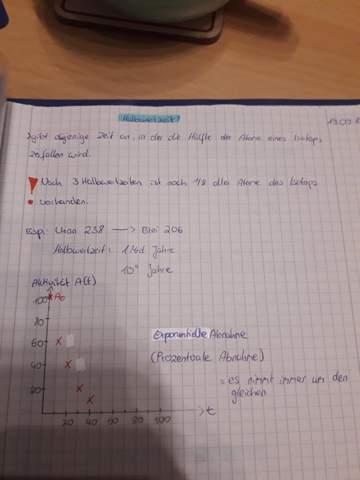 Halbwertszeit
19.09.
Sgibt diejenige Zeit an, in der die Hälfte der Atome eines Isotops
zerfallen wird.
! Nach 3 Halbwertzeiten ist noch 1/8 aller Atome des Isotops
vorhanden.
Bsp: Uran 238 → Blei 206
Halbwertzeit: 1 Mrd Jahre
Jahre
Aktivität A(t)
100 A₀
80
60
40
20
20 40 60 80 100 t
Exponentielle Abnahme
(Prozentuale Abnahme)
= es nimmt immer um den
gleichen